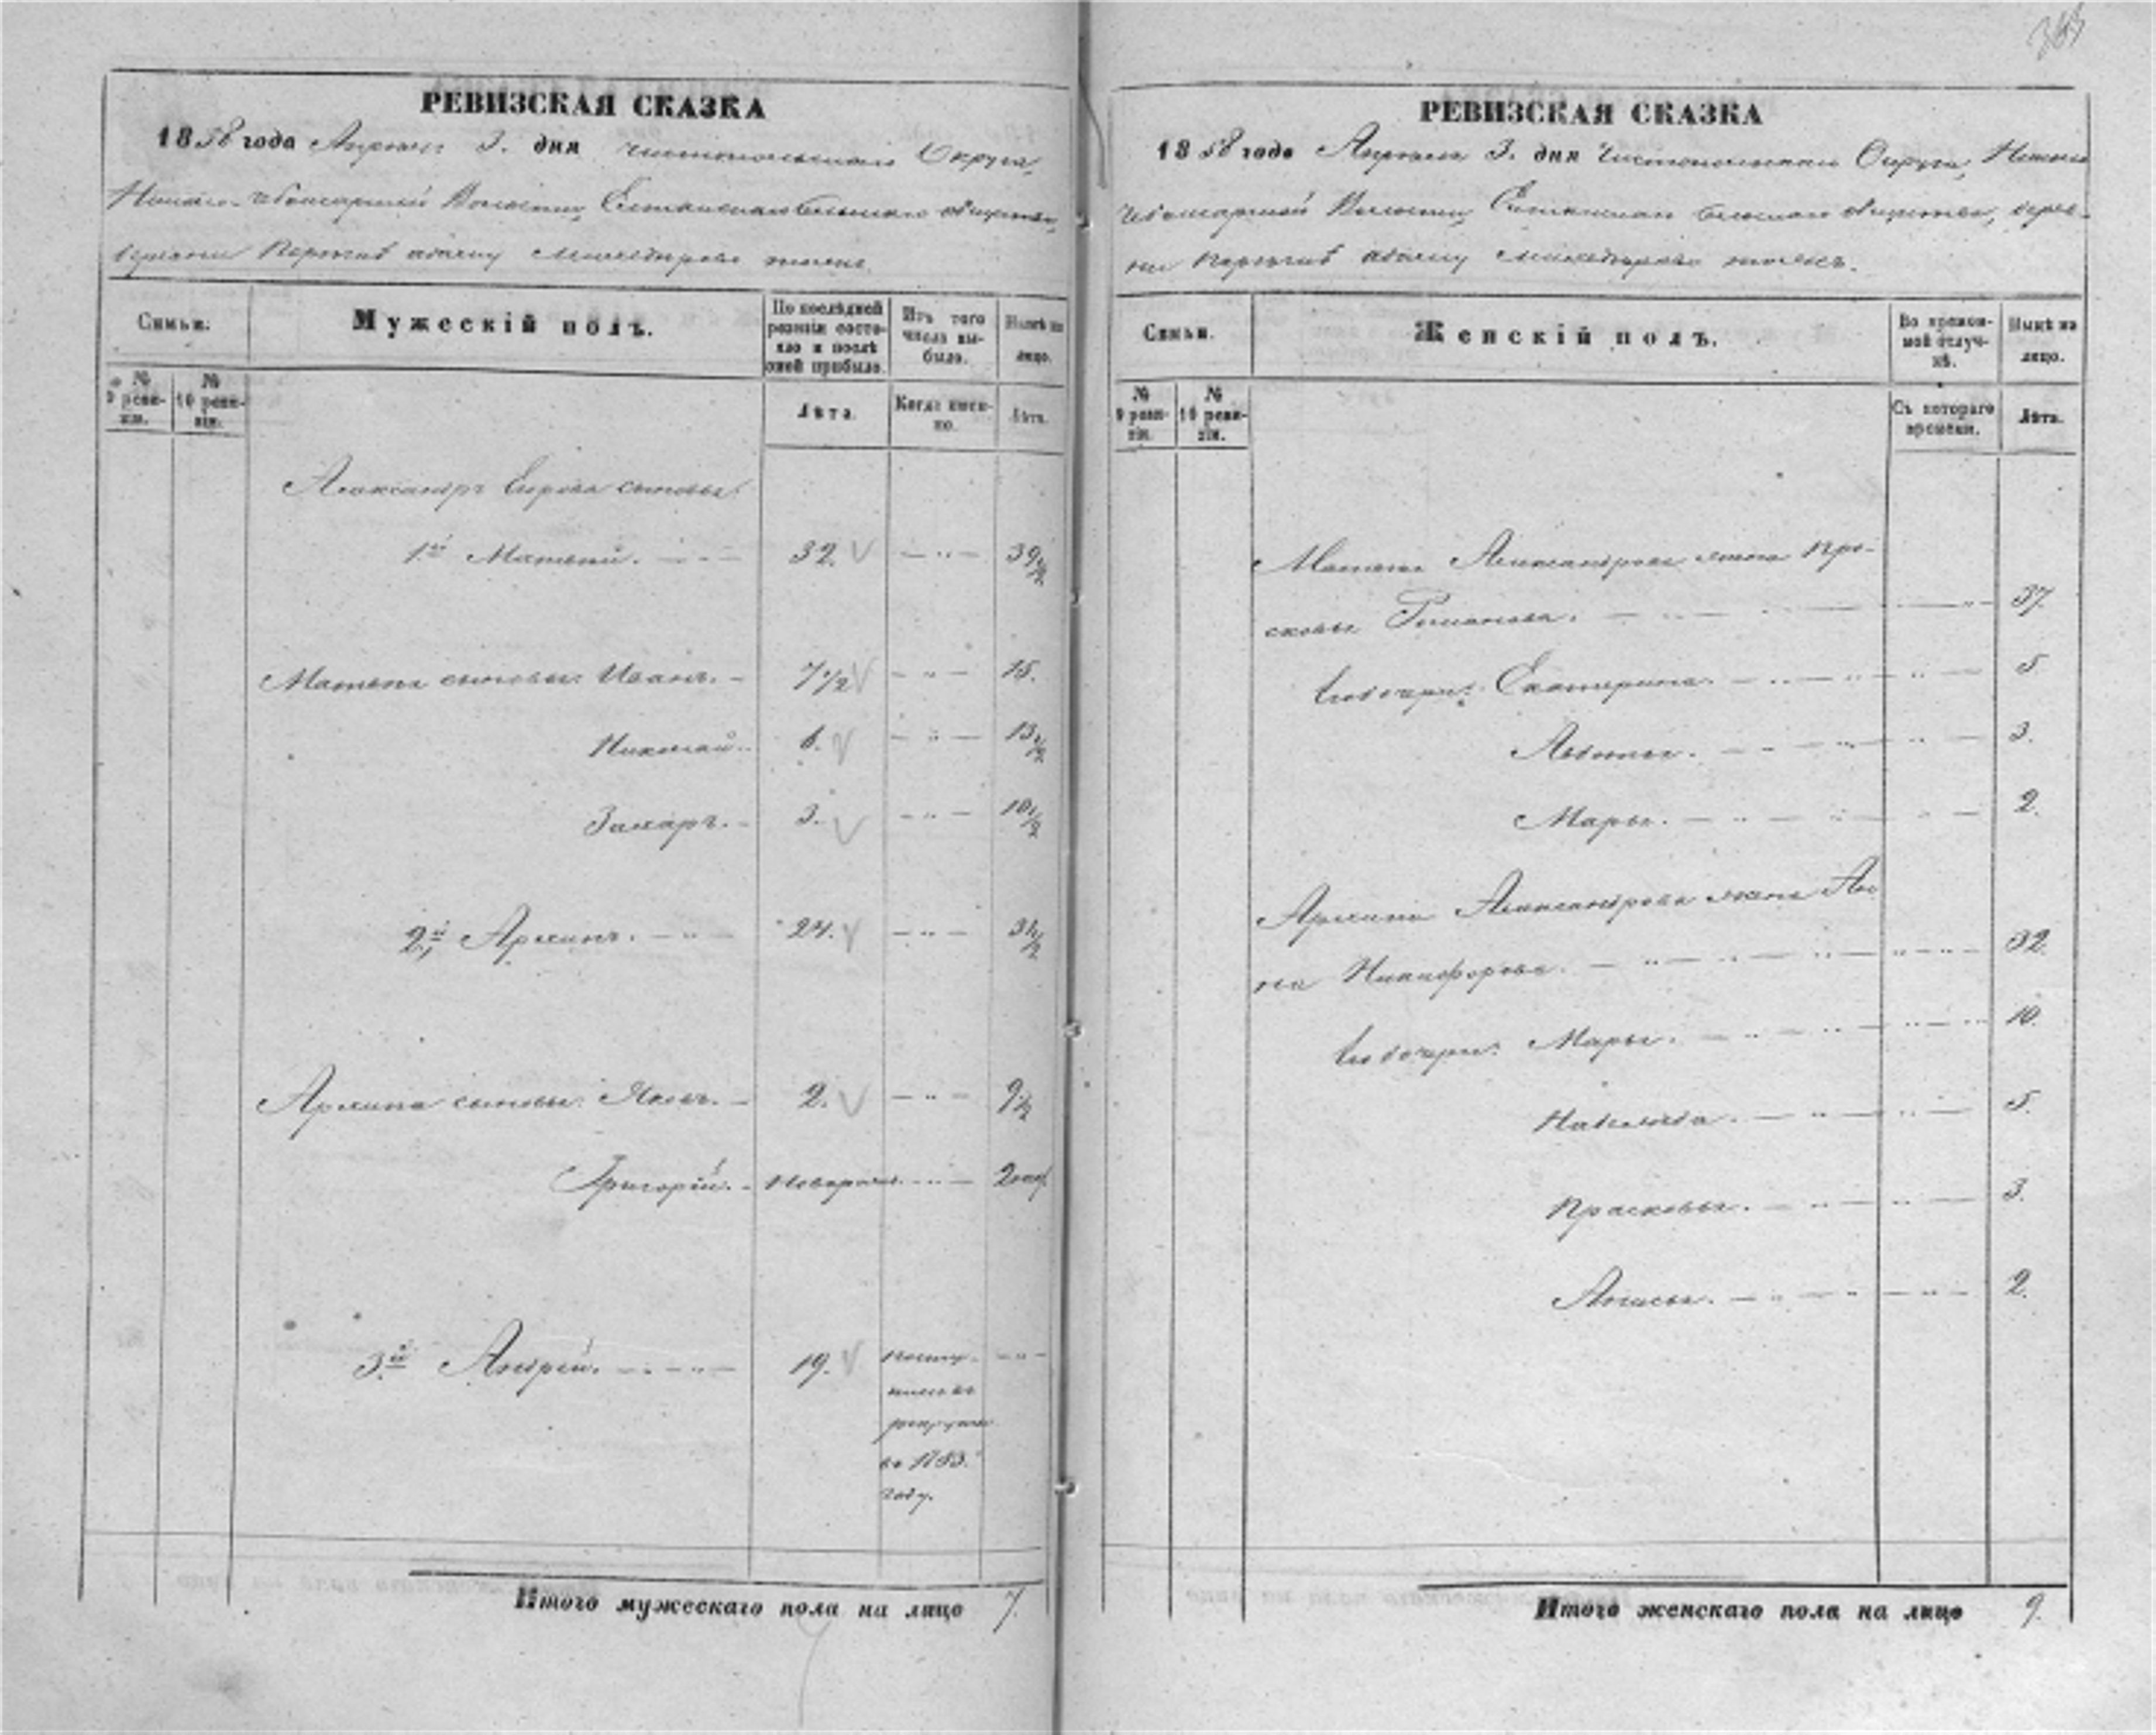 РЕВИЗСКАЯ СКАЗКА
1858 года Апреля 3. дня Чистопольскаго Округа,
Волости, общества,
деревни
Семьи.
Мужескій полъ.
По послѣдней ревизіи состояло и послѣ оной прибыло.
Изъ того числа выбыло.
Нынѣ на лицо.
№ 9 ревизіи.
№ 10 ревизіи.
Лѣта.
Когда именно.
Лѣта.
Александра сыновья:
1й Матвей. 32. 39½
Матвея сыновья: Иванъ. 7½ 15.
Николай. 6. 13½
Захаръ. 3. 10½
2й Архипъ. 24. 31½
Архипа сыновья: Яковъ. 2. 9½
Григорій. новорож. 2 нед.
3й Андрей. 19.
рекруты
въ 1853.
году.
Итого мужескаго пола на лицо 7.
РЕВИЗСКАЯ СКАЗКА
1858 года Апреля 3. дня Чистопольскаго Округа,
Волости, общества, дерев-
ни
Семьи.
Женскій полъ.
Во временной отлучкѣ.
Нынѣ на лицо.
№ 9 ревизіи.
№ 10 ревизіи.
Съ котораго времени.
Лѣта.
Матвея Александрова жена Пра-
сковья Романова. 37.
Екатерина. 5.
Авдотья. 3.
Марья. 2.
Архипа Александрова жена Ан-
на Никифорова. 32.
Марья. 10.
Надежда. 5.
Прасковья. 3.
Анисья. 2.
Итого женскаго пола на лицо 9.